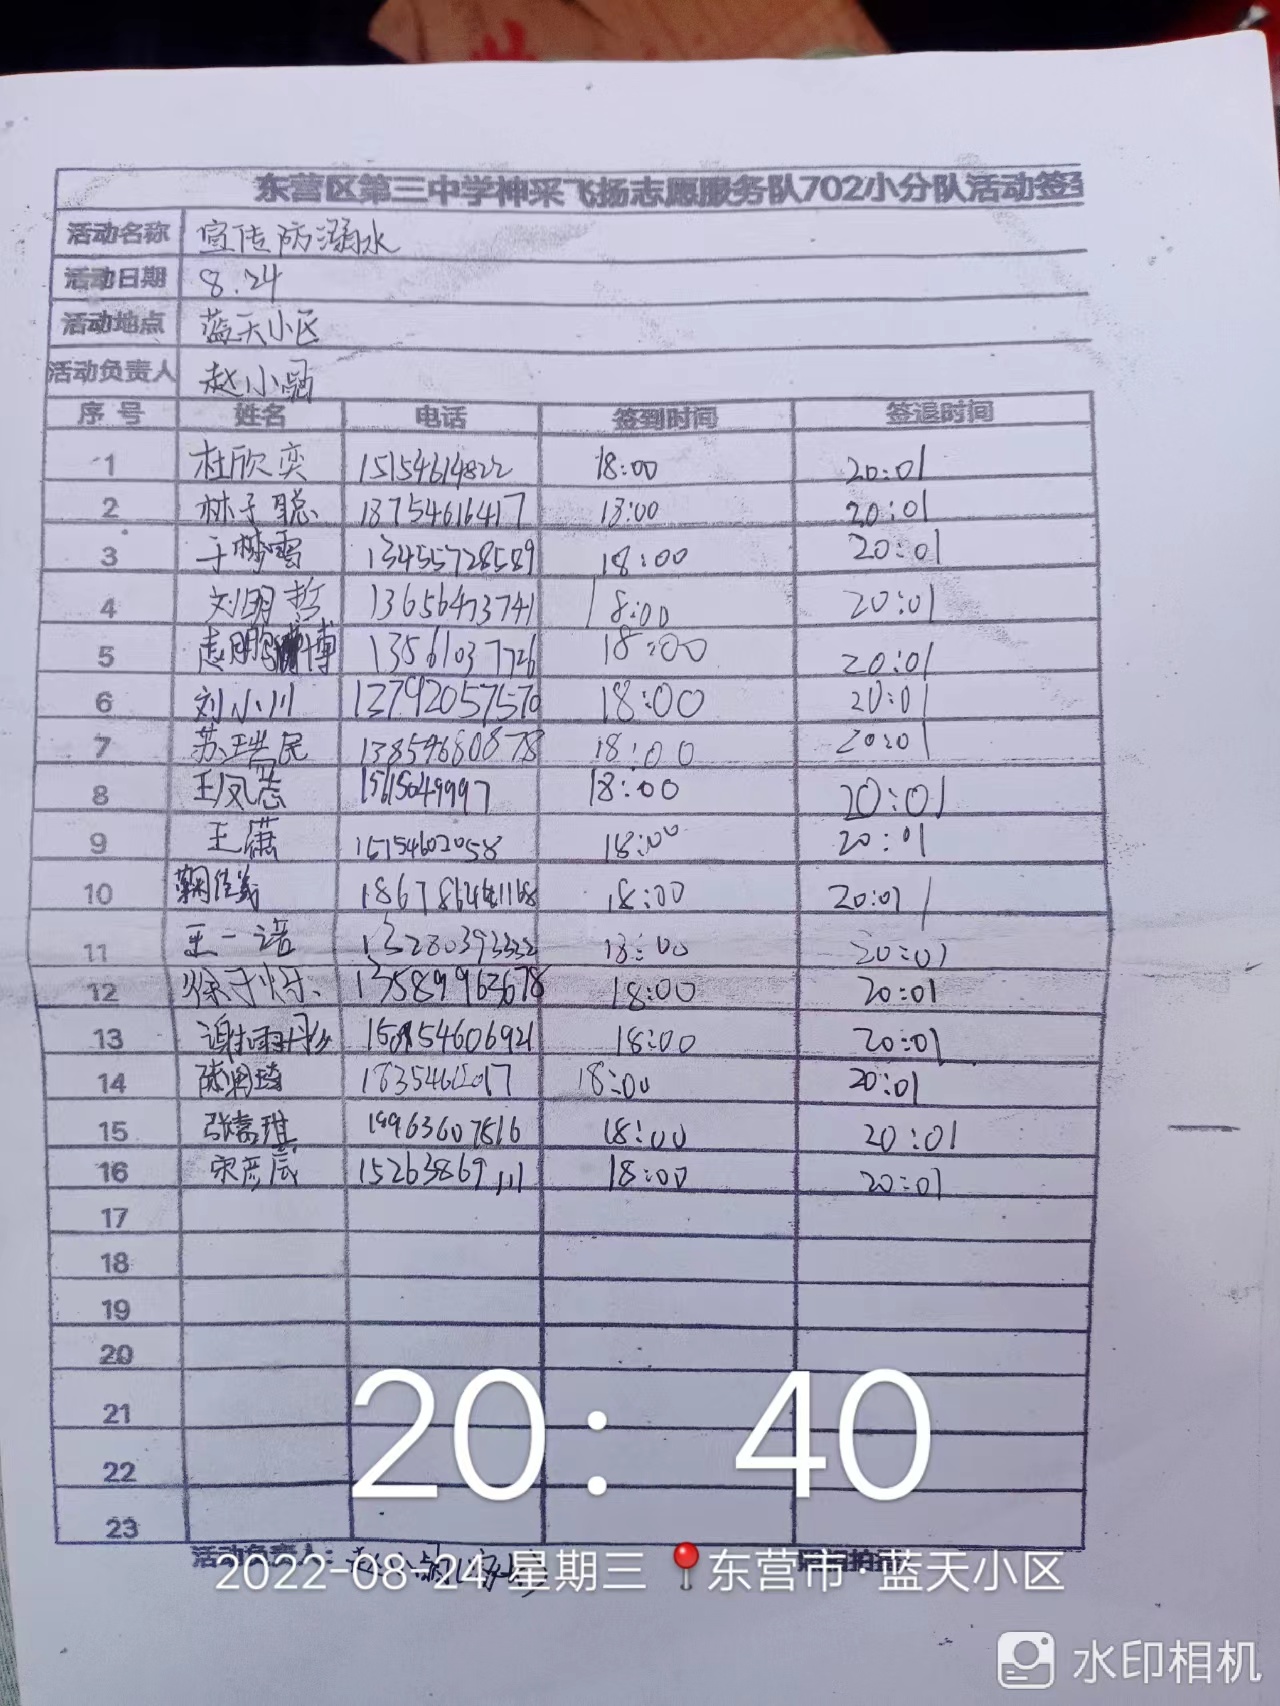 东营区第三中学神采飞扬志愿服务队702小分队活动签到
活动名称 宣传防溺水
活动日期 8.24
活动地点 蓝天小区
活动负责人 赵小涵
序号 姓名 电话 签到时间 签退时间
1 杜欣奕 15154614822 18:00 20:01
2 林子聪 18754616417 18:00 20:01
3 于梦雪 13455728589 18:00 20:01
4 刘明哲 13656473741 18:00 20:01
5 13561037726 18:00 20:01
6 刘小川 13792057570 18:00 20:01
7 苏瑞民 13854680878 18:00 20:01
8 王凤志 15615049997 18:00 20:01
9 王潇 15154602058 18:00 20:01
10 18:00 20:01
11 王一诺 13280393332 18:00 20:01
12 徐子烁 13589963678 18:00 20:01
13 谢雨彤 18:00 20:01
14 陈润琦 18354612017 18:00 20:01
15 张嘉琪 19963607816 18:00 20:01
16 宋彦辰 15263869111 18:00 20:01
17
18
19
20
21
22
23
20:40
活动负责人:
2022-08-24 星期三 东营市·蓝天小区
水印相机